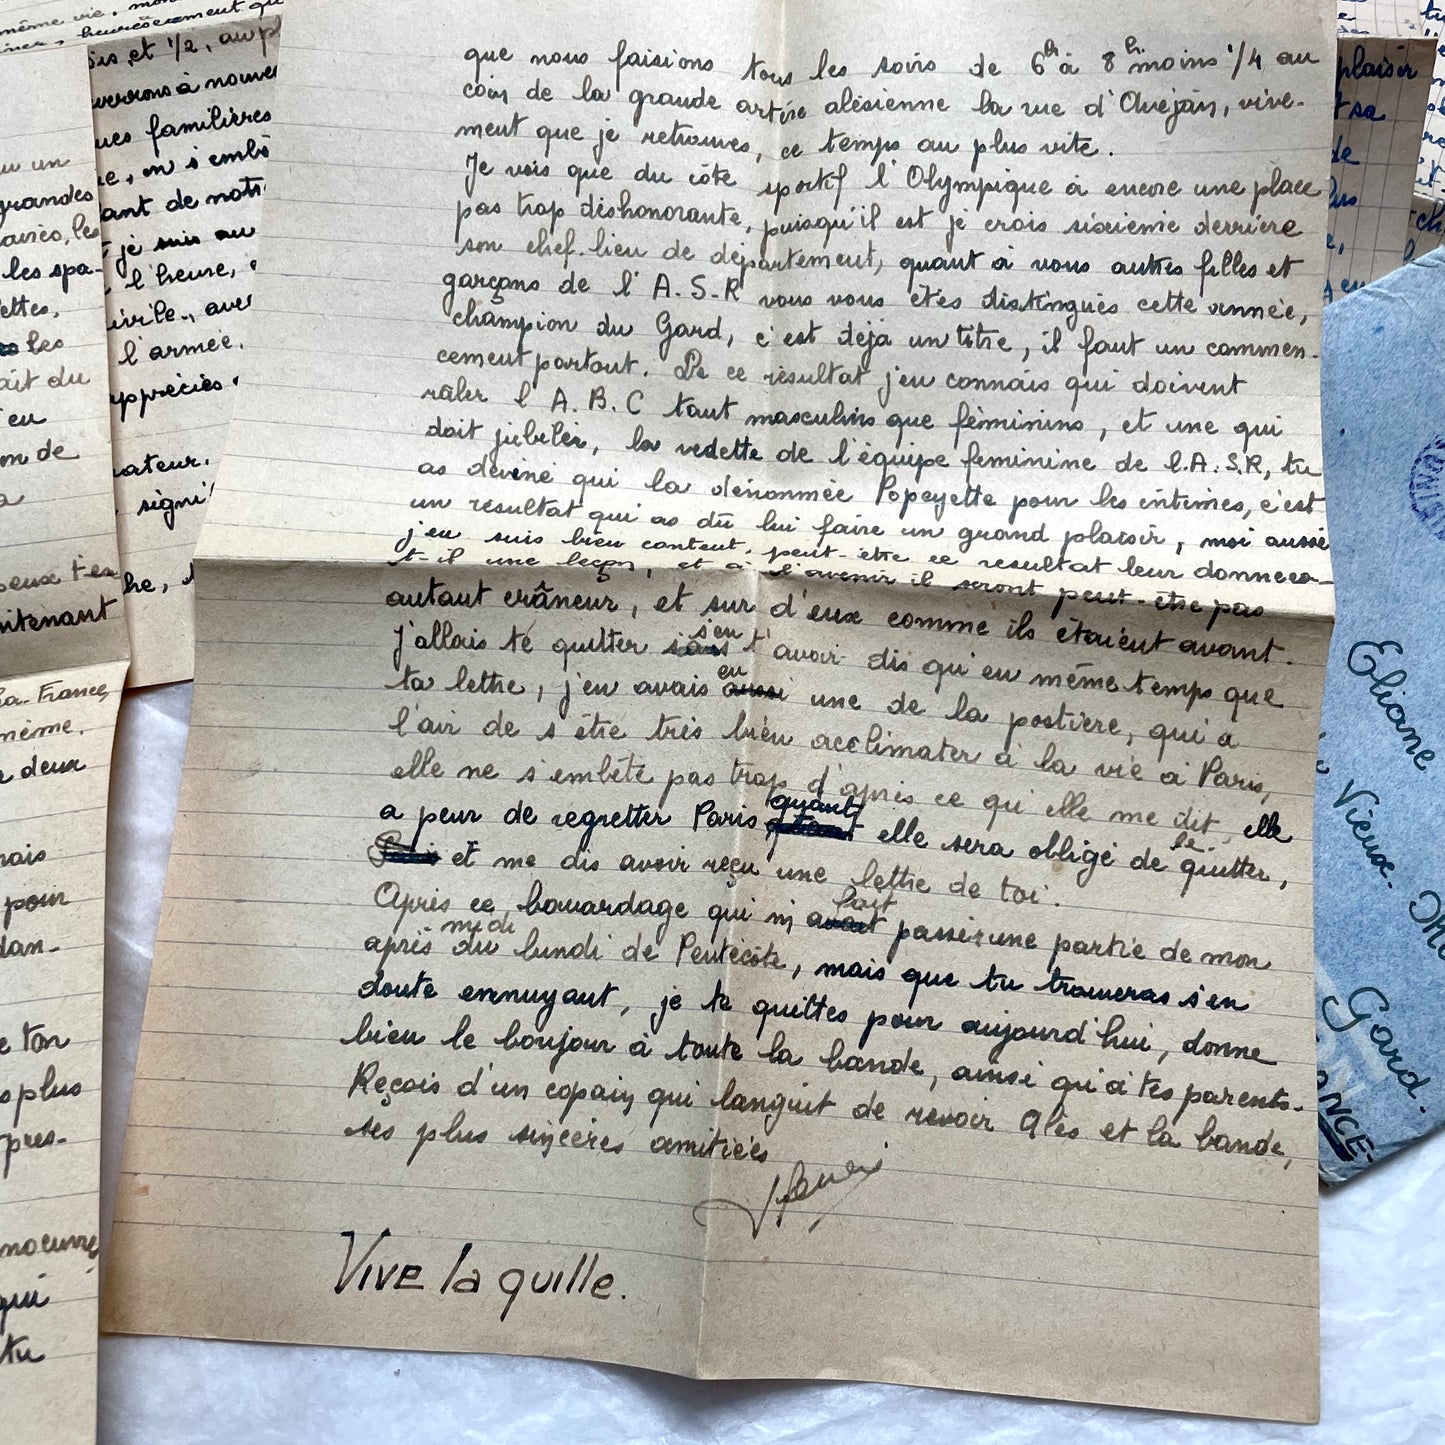 que nous faisions tous les soirs de 6h à 8h moins 1/4 au
coin de la grande artère alésienne la rue d'Avéjan, vive-
ment que je retrouves, ce temps au plus vite.
Je vois que du côté sportif l'Olympique à encore une place
pas trop déshonorante, puisqu'il est je crois sixième derrière
son chef-lieu de département, quant à vous autres filles et
garçons de l'A.S.R vous vous êtes distingués cette année,
champion du Gard, c'est déjà un titre, il faut un commen-
cement partout. De ce résultat j'en connais qui doivent
râler l'A.B.C tant masculins que féminins, et une qui
doit jubiler, la vedette de l'équipe féminine de l'A.S.R, tu
as deviné qui la dénommée Popeyette pour les intimes, c'est
un résultat qui as dû lui faire un grand plaisir, moi aussi
j'en suis bien content, peut-être ce resultat leur donnera-
t-il une leçon, et à l'avenir il seront peut-être pas
autant crâneur, et sur d'eux comme ils étaient avant.
J'allais te quitter sans s'en t'avoir dis qu'en même temps que
ta lettre, j'en avais aussi eu une de la postière, qui a
l'air de s'être très bien acclimater à la vie à Paris,
elle ne s'embête pas trop d'après ce qu'elle me dit, elle
a peur de regretter Paris, quant elle sera obligé de le quitter,
et me dis avoir reçu une lettre de toi.
Après ce bavardage qui m'avait fait passer une partie de mon
après midi du lundi de Pentecôte, mais que tu trouveras s'en
doute ennuyant, je te quittes pour aujourd'hui, donne
bien le bonjour à toute la bande, ainsi qu'à tes parents.
Reçois d'un copain qui languit de revoir Alès et la bande,
ses plus sincères amitiées
Vive la quille.
sis et 1/2, au p
verrons à nouve
ues familières
e, on s'embê
ant de notr
je suis au
l'heure,
ivile, ave
l'armée.
appréciés.
rateur.
signi
he,
un
grandes
les spa-
ettes,
les
ait du
en
on de
a
peux t-en
intenant
la France,
même.
deux
mais
pour
dan-
e ton
s plus
pres-
manoeuvre
qui
tu
plaisir
t sa
de
lus
Eliane
Vieux.
Gard.
FRANCE